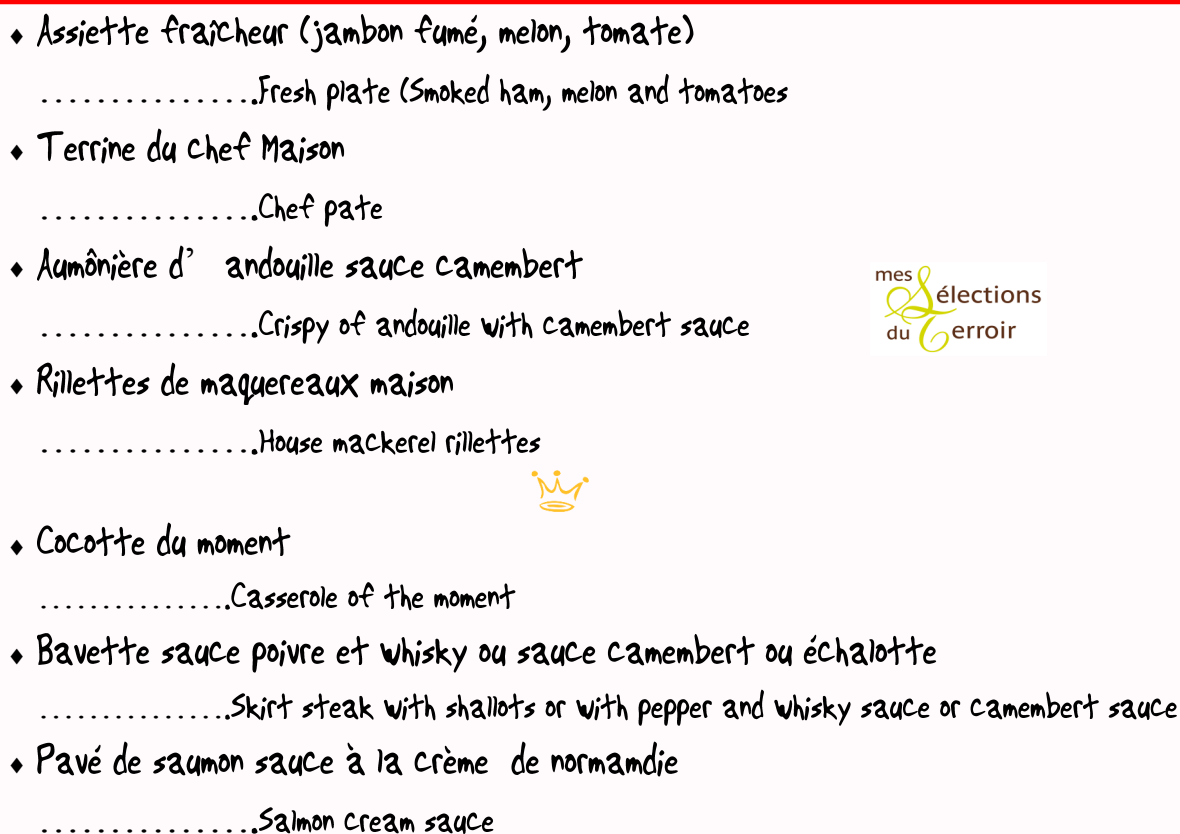 ♦ Assiette fraîcheur (jambon fumé, melon, tomate)
................Fresh plate (Smoked ham, melon and tomatoes
♦ Terrine du chef Maison
................Chef pate
♦ Aumônière d’ andouille sauce camembert
................Crispy of andouille with camembert sauce
mes Sélections
du Terroir
♦ Rillettes de maquereaux maison
................House mackerel rillettes
♦ Cocotte du moment
................Casserole of the moment
♦ Bavette sauce poivre et whisky ou sauce camembert ou échalotte
................Skirt steak with shallots or with pepper and whisky sauce or camembert sauce
♦ Pavé de saumon sauce à la crème de normamdie
................Salmon cream sauce